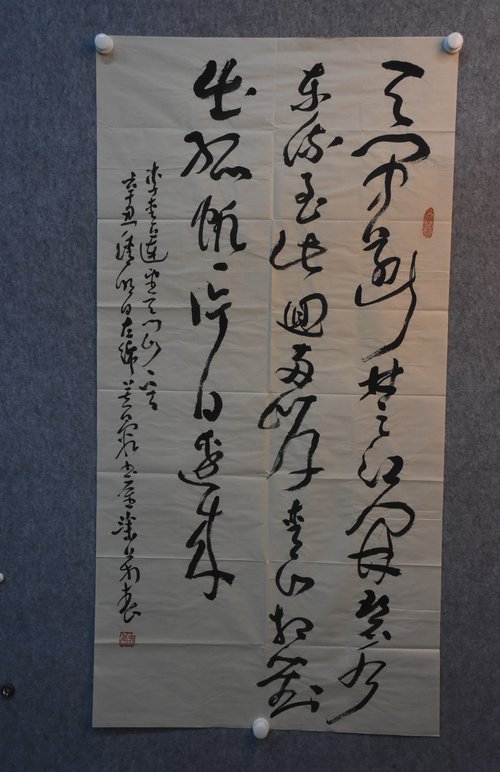 天門中斷楚江開碧水
東流至此迴兩岸青山相對
出孤帆一片日邊來
李青蓮望天門山一首
辛丑清明日